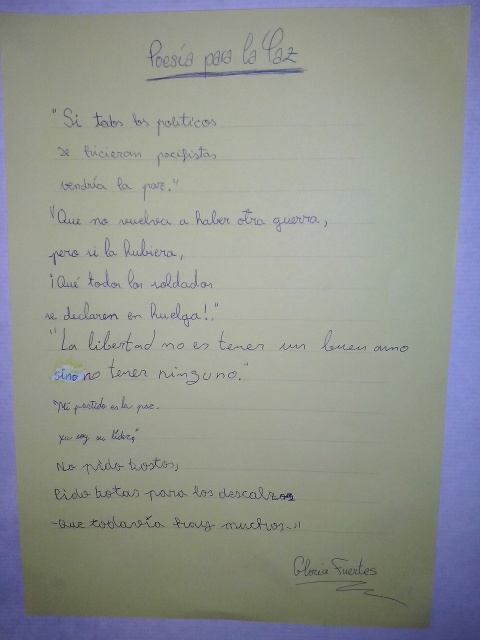 Poesía para la Paz
"Si todos los políticos
se hicieran pacifistas
vendría la paz."
"Que no vuelva a haber otra guerra,
pero si la hubiera,
¡Qué todos los soldados
se declaren en huelga!."
"La libertad no es tener un buen amo
sino no tener ninguno."
"Mi partido es la paz.
yo soy su líder,"
No pido votos,
Pido botas para los descalzos
-que todavía hay muchos-."
Gloria Fuertes